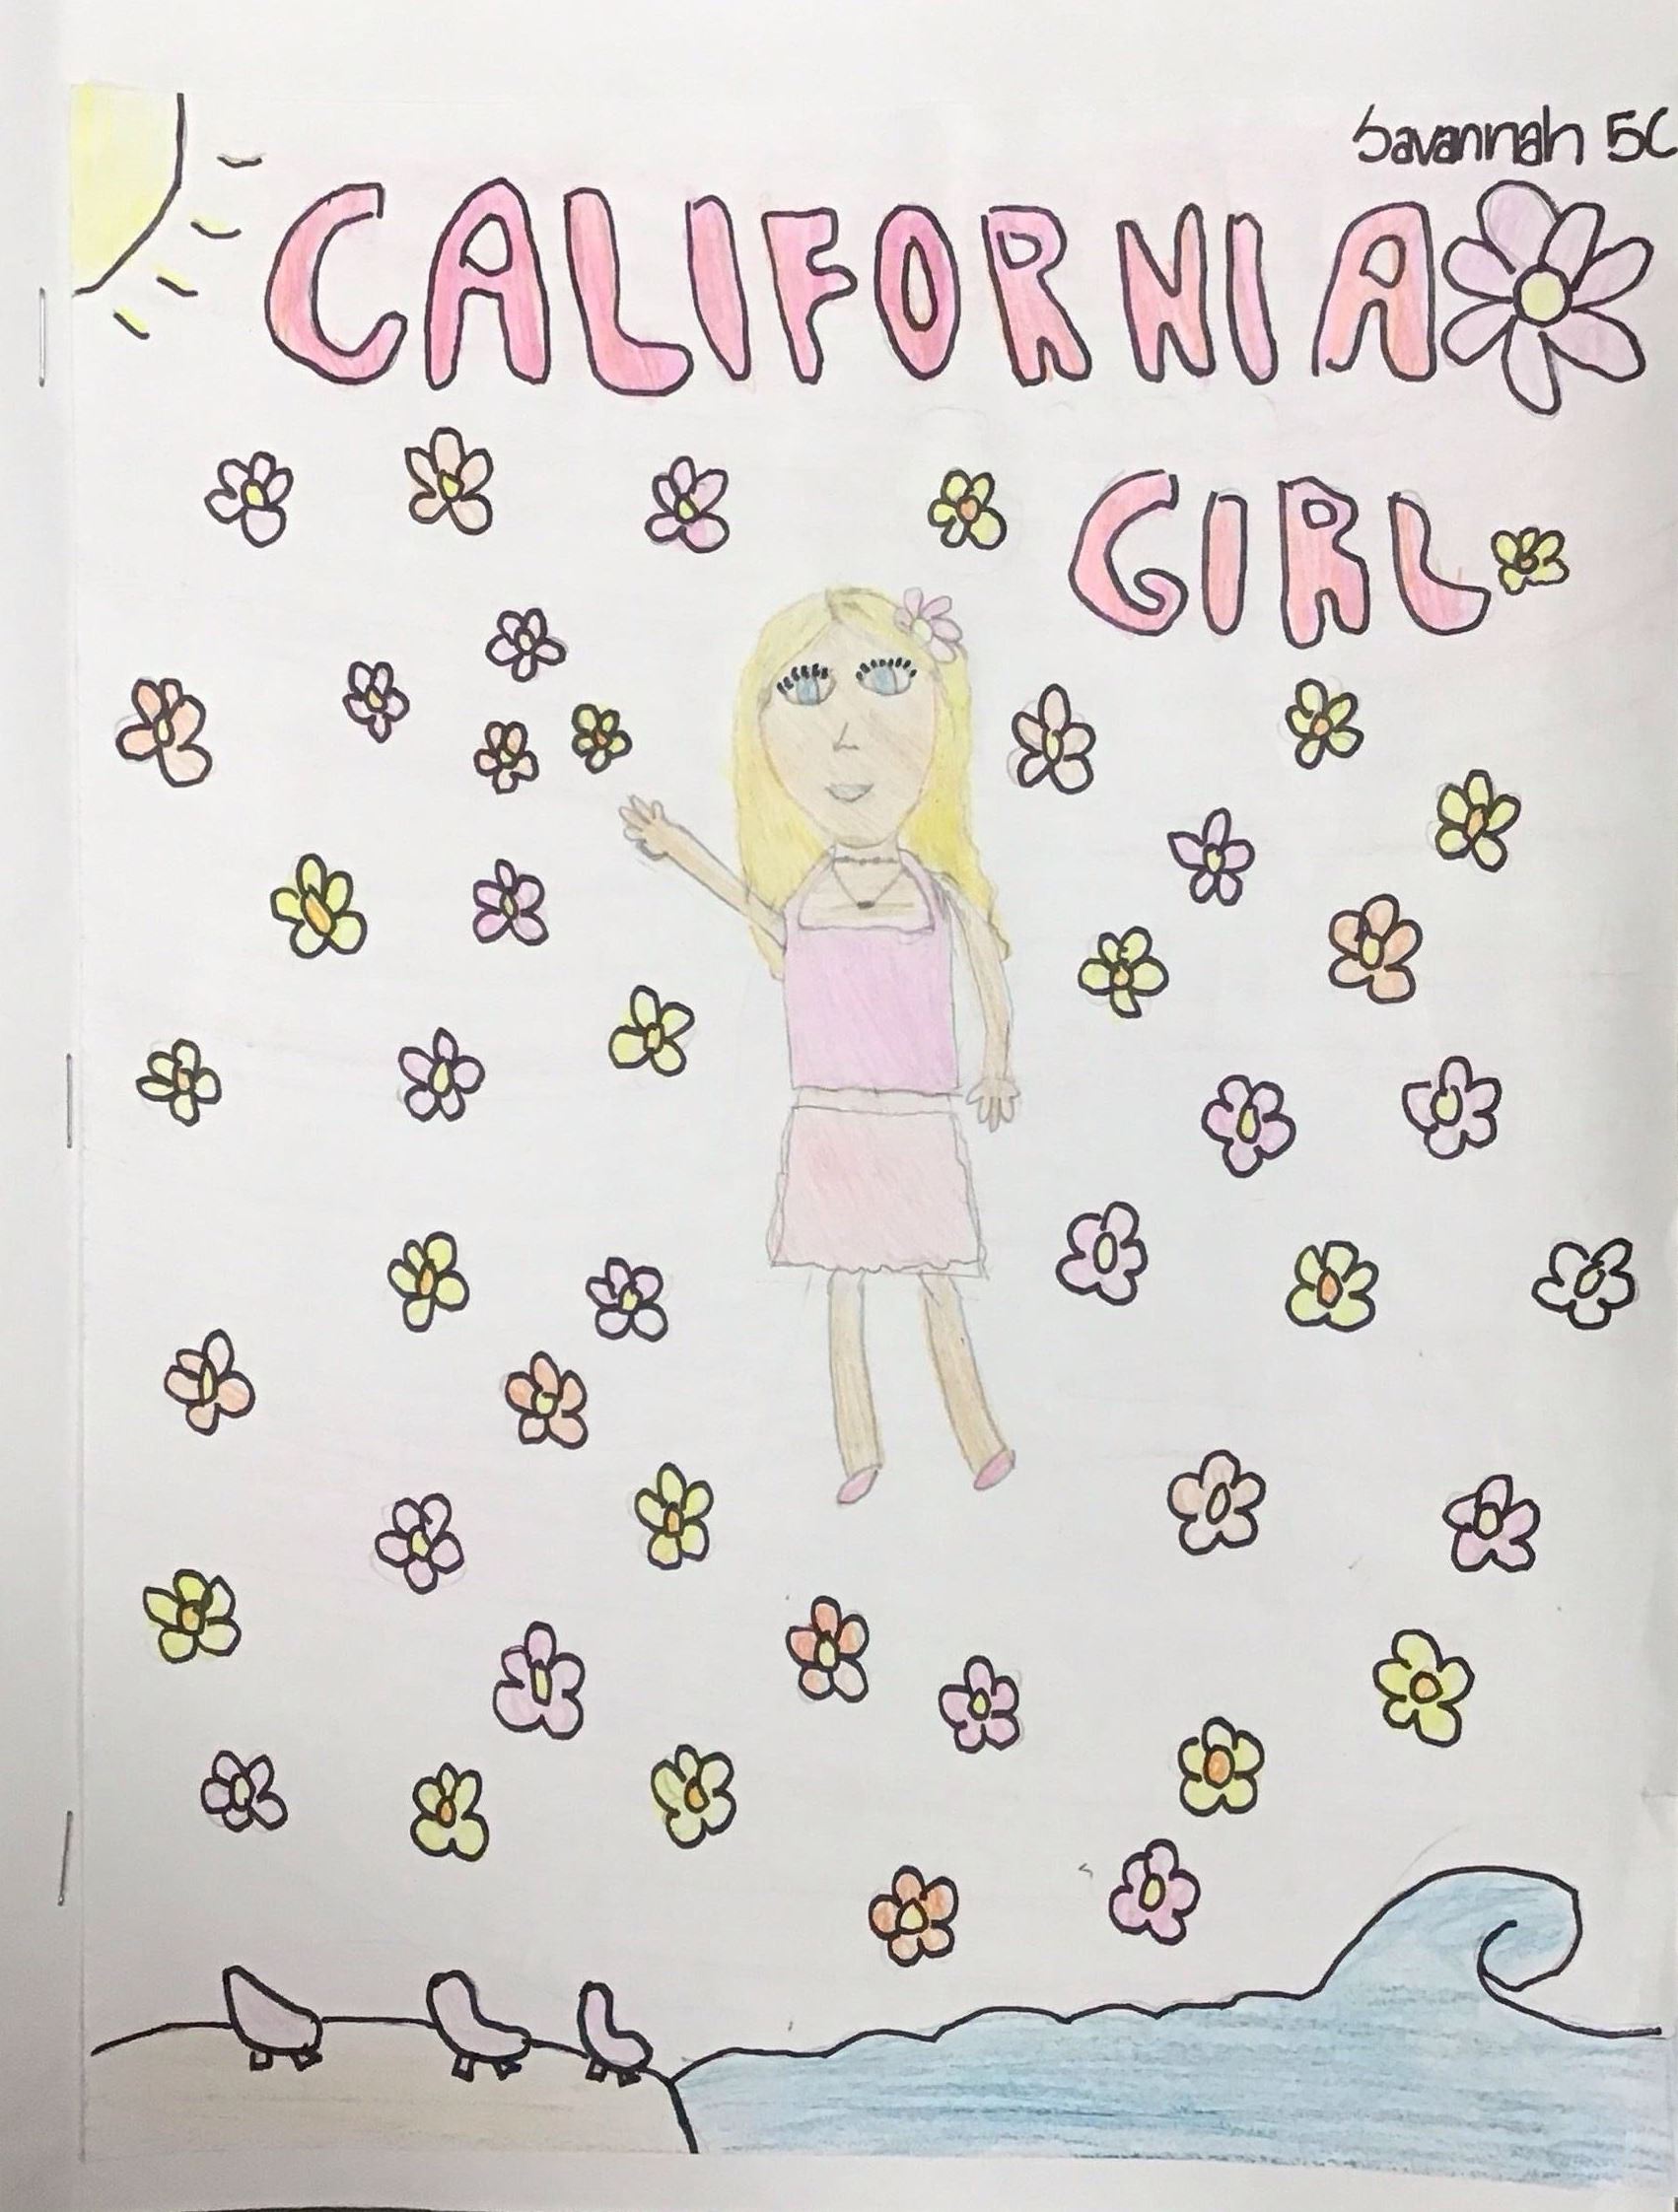 Savannah 5C
CALIFORNIA
GIRL